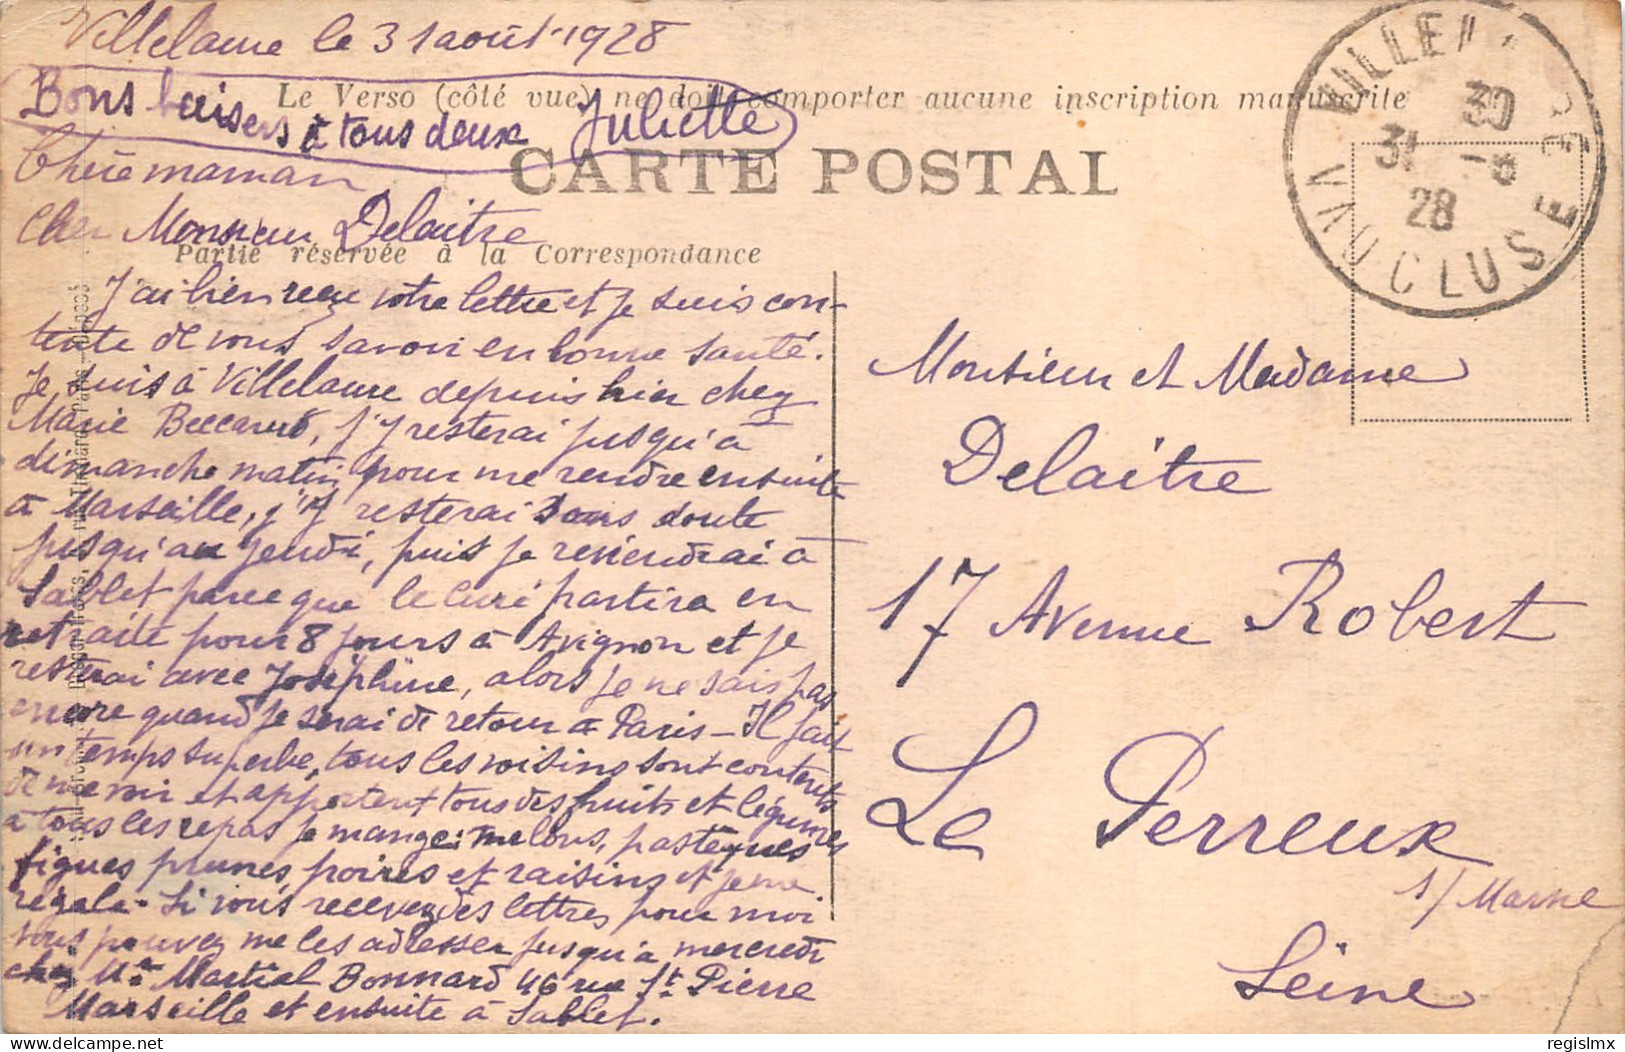 Villelaure le 31 août 1928
Bons baisers à tous deux Juliette
Le Verso (côté vue) ne doit comporter aucune inscription manuscrite
CARTE POSTALE
Chère maman
Cher Monsieur Delaitre
Partie réservée à la Correspondance
J'ai bien reçu votre lettre et je suis con-
tente de vous savoir en bonne santé.
Je suis à Villelaure depuis hier chez
Marie Beccarud, j'y resterai jusqu'à
dimanche matin pour me rendre ensuite
à Marseille, j'y resterai sans doute
jusqu'au jeudi, puis je reviendrai à
Sablet parce que le curé partira en
retraite pour 8 jours à Avignon et je
resterai avec Joséphine, alors je ne sais pas
encore quand je serai de retour à Paris - Il fait
un temps superbe, tous les voisins sont contents
de me voir et apportent tous des fruits et légumes
à tous les repas je mange: melons, pastèques
figues prunes poires et raisins et je me
régale - Si vous recevez des lettres pour moi
vous pouvez me les adresser jusqu'à mercredi
chez Mr Martial Bonnard 46 rue St Pierre
Marseille et ensuite à Sablet.
VILLE
VAUCLUSE
30
31 -8
28
Monsieur et Madame
Delaitre
17 Avenue Robert
Le Perreux
s/ Marne
Seine
delcampe.net
regislmx